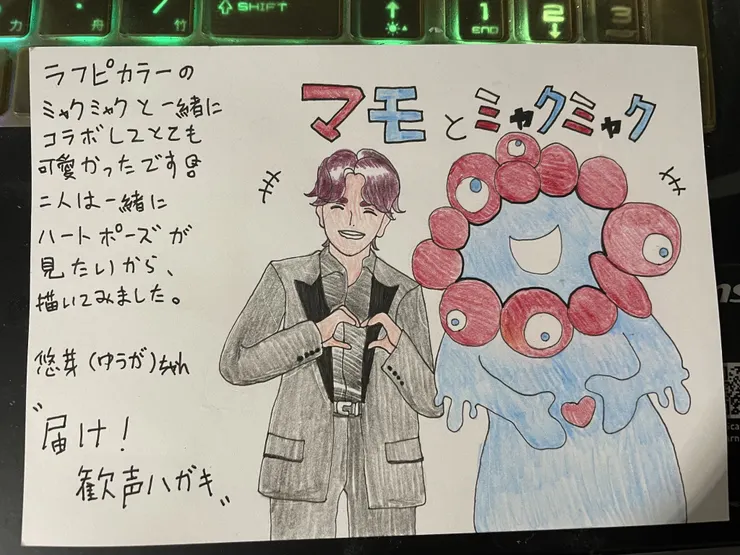 カ
舟
竹
SHIFT
1
END
2
3
マモとミャクミャク
ラフピカラーの
ミャクミャクと一緒に
コラボしてとても
可愛かったです
二人は一緒に
ハートポーズが
見たいから、
描いてみました。
悠芽(ゆうが)ちゃん
"届け!
歓声ハガキ"